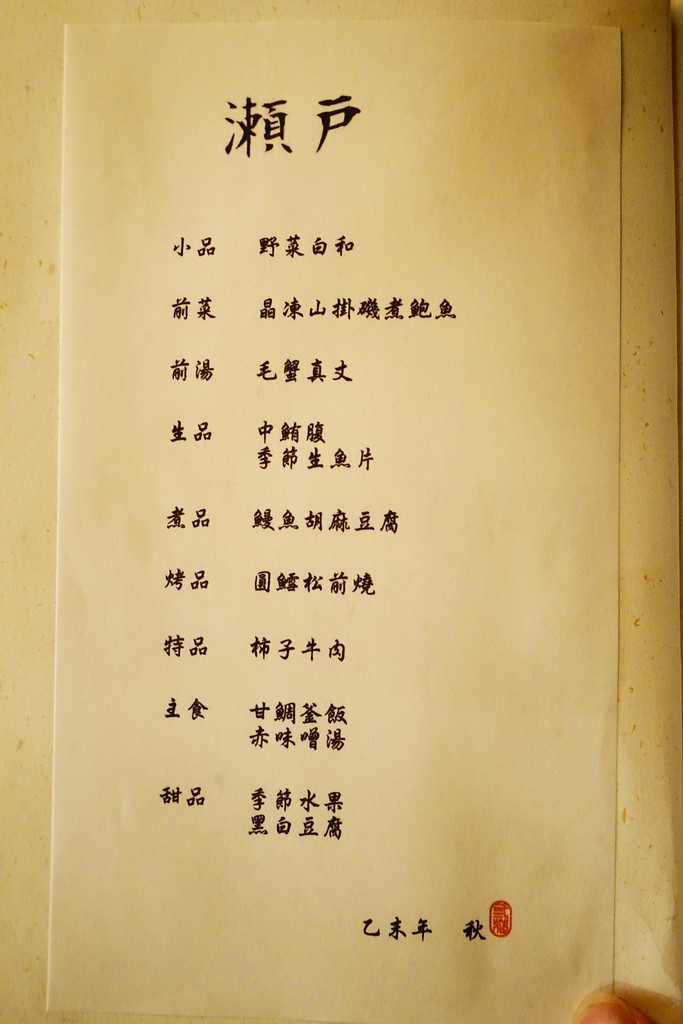 瀨戶
小品 野菜白和
前菜 晶凍山掛磯煮鮑魚
前湯 毛蟹真丈
生品 中鮪腹
季節生魚片
煮品 鰻魚胡麻豆腐
烤品 圓鱈松前燒
特品 柿子牛肉
主食 甘鯛釜飯
赤味噌湯
甜品 季節水果
黑白豆腐
乙未年 秋